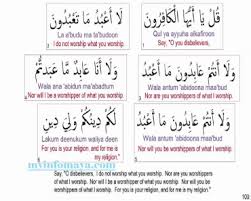 قُلْ يَا أَيُّهَا الْكَافِرُونَ
Qul ya ayyuha alkafiroon
Say, "O you disbelievers,
1
لَا أَعْبُدُ مَا تَعْبُدُونَ
La a'budu ma ta'budoon
I do not worship what you worship.
2
وَلَا أَنْتُمْ عَابِدُونَ مَا أَعْبُدُ
Wala antum 'abidoona maa'bud
Nor are you worshippers of what I worship.
3
وَلَا أَنَا عَابِدٌ مَا عَبَدْتُمْ
Wala ana 'abidun ma'abadtum
Nor will I be a worshipper of what you worship.
4
وَلَا أَنْتُمْ عَابِدُونَ مَا أَعْبُدُ
Wala antum 'abidoona maa'bud
Nor will you be worshippers of what I worship.
5
لَكُمْ دِينُكُمْ وَلِيَ دِينِ
Lakum deenukum waliya deen
For you is your religion, and for me is my religion."
Say, "O disbelievers, I do not worship what you worship. Nor are you worshippers
of what I worship. Nor will I be a worshipper of what you worship. Nor will you be
worshippers of what I worship. For you is your religion, and for me is my religion."
103